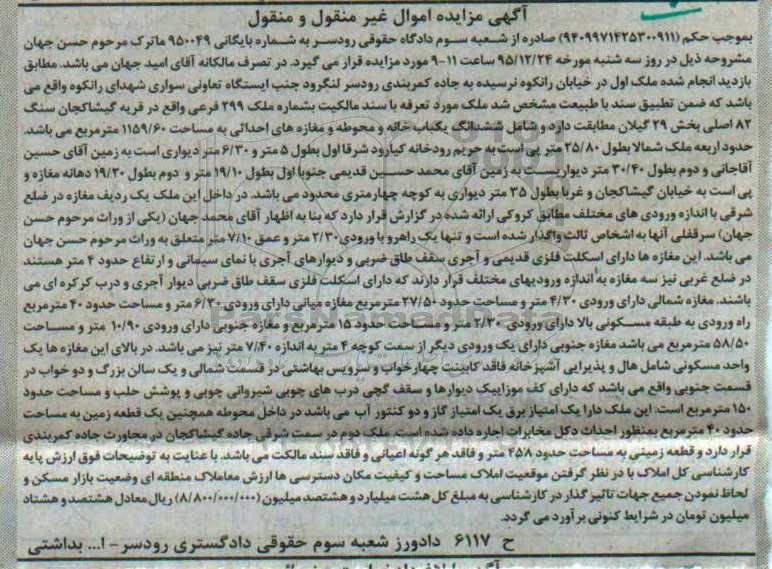 آگهی مزایده اموال غیر منقول و منقول
بموجب حکم (۹۴۰۹۹۷۱۴۲۵۳۰۰۹۱۱) صادره از شعبه سوم دادگاه حقوقی رودسر به شماره بایگانی ۹۵۰۰۴۹ ماترک مرحوم حسن جهان
مشروحه ذیل در روز سه شنبه مورخه ۹۵/۱۲/۲۴ ساعت ۱۱-۹ مورد مزایده قرار می گیرد. در تصرف مالکانه آقای امید جهان می باشد. مطابق
بازدید انجام شده ملک اول در خیابان رانکوه نرسیده به جاده کمربندی رودسر لنگرود جنب ایستگاه تعاونی سواری شهدای رانکوه واقع می
باشد که ضمن تطبیق سند با طبیعت مشخص شد ملک مورد تعرفه با سند مالکیت بشماره ملک ۲۹۹ فرعی واقع در قریه گیشاکجان سنگ
۸۲ اصلی بخش ۲۹ گیلان مطابقت دارد و شامل ششدانگ یکباب خانه و محوطه و مغازه های احداثی به مساحت ۱۱۵۹/۶۰ مترمربع می باشد.
حدود اربعه ملک شمالا بطول ۲۵/۸۰ متر پی است به حریم رودخانه کیارود شرقا اول بطول ۵ متر و ۶/۳۰ متر دیواری است به زمین آقای حسین
آقاجانی و دوم بطول ۳۰/۴۰ متر دیواریست به زمین آقای محمد حسین قدیمی جنوبا اول بطول ۱۹/۱۰ متر و دوم بطول ۱۹/۲۰ دهانه مغازه و
پی است به خیابان گیشاکجان و غربا بطول ۳۵ متر دیواری به کوچه چهارمتری محدود می باشد. در داخل این ملک یک ردیف مغازه در ضلع
شرقی با اندازه ورودی های مختلف مطابق کروکی ارائه شده در گزارش قرار دارد که بنا به اظهار آقای محمد جهان (یکی از وراث مرحوم حسن
جهان) سرقفلی آنها به اشخاص ثالث واگذار شده است و تنها یک راهرو با ورودی ۲/۳۰ متر و عمق ۷/۱۰ متر متعلق به وراث مرحوم حسن جهان
می باشد. این مغازه ها دارای اسکلت فلزی قدیمی و آجری سقف طاق ضربی و دیوارهای آجری با نمای سیمانی و ارتفاع حدود ۴ متر هستند
در ضلع غربی نیز سه مغازه به اندازه ورودیهای مختلف قرار دارند که دارای اسکلت فلزی سقف طاق ضربی دیوار آجری و درب کرکره ای می
باشند. مغازه شمالی دارای ورودی ۴/۳۰ متر و مساحت حدود ۲۷/۵۰ مترمربع مغازه میانی دارای ورودی ۶/۳۰ متر و مساحت حدود ۴۰ مترمربع
راه ورودی به طبقه مسکونی بالا دارای ورودی ۲/۳۰ متر و مساحت حدود ۱۵ مترمربع و مغازه جنوبی دارای ورودی ۱۰/۹۰ متر و مساحت
۵۸/۵۰ مترمربع می باشد مغازه جنوبی دارای یک ورودی دیگر از سمت کوچه ۴ متر به اندازه ۷/۴۰ متر نیز می باشد. در بالای این مغازه ها یک
واحد مسکونی شامل هال و پذیرایی آشپزخانه فاقد کابینت چهارخواب و سرویس بهاشتی در قسمت شمالی و یک سالن بزرگ و دو خواب در
قسمت جنوبی واقع می باشد که دارای کف موزاییک دیوارها و سقف گچی درب های چوبی شیروانی چوبی و پوشش حلب و مساحت حدود
۱۵۰ مترمربع است. این ملک دارا یک امتیاز برق یک امتیاز گاز و دو کنتور آب می باشد در داخل محوطه همچنین یک قطعه زمین به مساحت
حدود ۴۰ مترمربع بمنظور احداث دکل مخابرات اجاره داده شده است. ملک دوم در سمت شرقی جاده گیشاکجان در مجاورت جاده کمربندی
قرار دارد و قطعه زمینی به مساحت حدود ۴۵۸ متر و فاقد هر گونه اعیانی و فاقد سند مالکت می باشد. با عنایت به توضیحات فوق ارزش پایه
کارشناسی کل املاک با در نظر گرفتن موقعیت املاک مساحت و کیفیت مکان دسترسی ها ارزش معاملاک منطقه ای وضعیت بازار مسکن و
لحاظ نمودن جمیع جهات تاثیر گذار در کارشناسی به مبلغ کل هشت میلیارد و هشتصد میلیون (۸/۸۰۰/۰۰۰/۰۰۰) ریال معادل هشتصد و هشتاد
میلیون تومان در شرایط کنونی برآورد می گردد.
ح ۶۱۱۷ دادورز شعبه سوم حقوقی دادگستری رودسر - ا... بداشتی